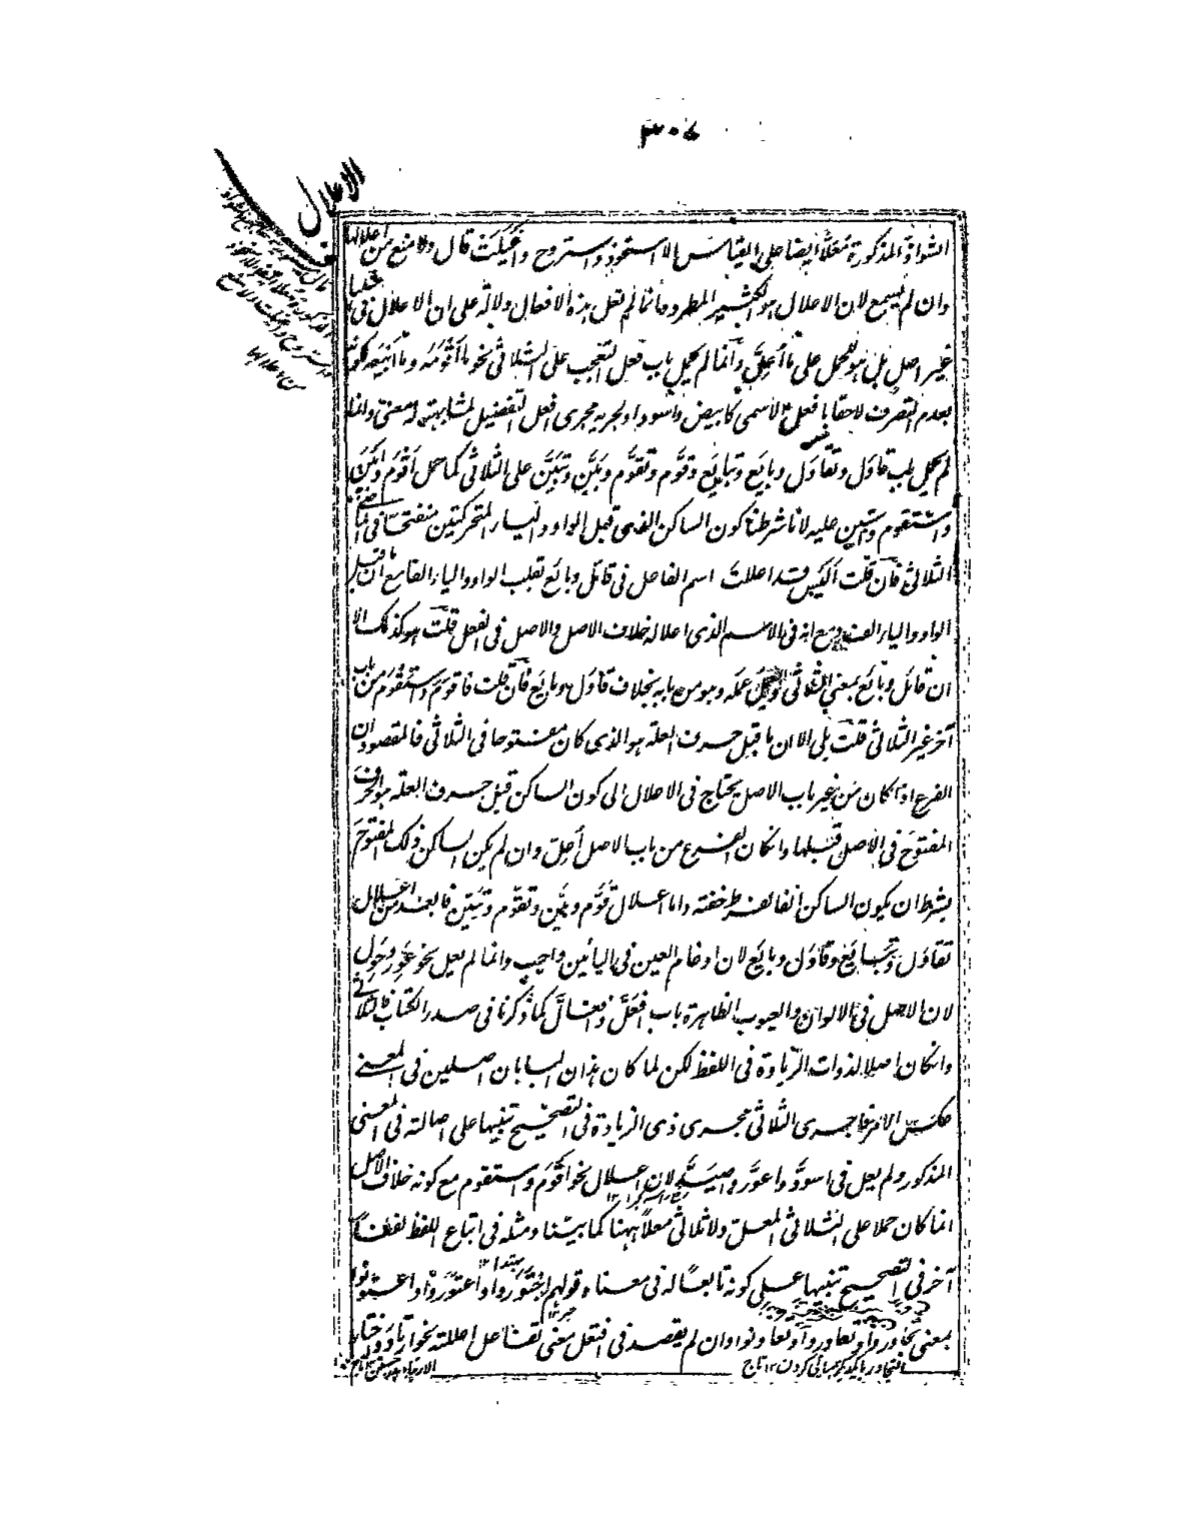 ٣٠٤
الاعلال
الشواذ المذكورة مُعَلَّة ايضا على القياس الا استحوذ واستروح واغيلت قال ولا منع من اعلالها
وان لم يسمع لان الاعلال هو الكثير المطرد وانما لم تعل هذه الافعال دلالة على ان الاعلال فى مثلها
غير اصل بل هو للحمل على ما أُعِلَّ وانما لم يحمل باب فعل التعجب على الثلاثى نحو ما اَقْوَمَه وما اَبْيَعَه لكونه
بعدم التصرف لاحقا بافعل الاسمى كابيض واسود او لجريه مجرى افعل التفضيل لمشابهته له معنى وانما
لم يحمل باب قاوَل وتقاوَل وبايَع وتبايَع وقوَّم وتقوَّم وبَيَّن وتبَيَّن على الثلاثى كما حمل اَقْوَم واَبْيَن
واستقوم واستبين عليه لانا شرطنا كون الساكن الذى قبل الواو والياء المتحركتين منفتحا فى الماضى
الثلاثى فان قلت أليس قد اعللت اسم الفاعل فى قائل وبائع بقلب الواو والياء الفا مع ان قبل
الواو والياء الف ومع انه فى الاسم الذى اعلاله خلاف الاصل والاصل فى الفعل قلت هو كذلك الا
ان قائل وبائع بمعنى الثلاثى ويعمل عمله وهو من بابه بخلاف قاوَل وبايَع فان قلت فاقوَم واستقوَم من باب
آخر غير الثلاثى قلت بلى الا ان ما قبل حرف العلة هو الذى كان مفتوحا فى الثلاثى فالمقصود ان
الفرع اذا كان من غير باب الاصل يحتاج فى الاعلال الى كون الساكن قبل حرف العلة هو الحرف
المفتوح فى الاصل قبلها وان كان الفرع من باب الاصل أعل وان لم يكن الساكن ذلك المفتوح
بشرط ان يكون الساكن الفا لفرط خفته واما اعلال قوَّم وبيَّن وتقوَّم وتبيَّن فابعد من اعلال
تقاوَل وتبايَع وقاوَل وبايَع لان ادغام العين فى اليائين واجب وانما لم يعل نحو عَوِر وحَوِل
لان الاصل فى الالوان والعيوب الظاهرة باب افعَلَّ وافعالَّ كما ذكرنا فى صدر الكتاب فالثلاثى
وان كان اصلا لذوات الزيادة فى اللفظ لكن لما كان هذان البابان اصلين فى المعنى
عكس الامر فاجرى الثلاثى مجرى ذى الزيادة فى التصحيح تنبيها على اصالته فى المعنى
المذكور ولم يعل فى اسودَّ واعورَّ واصيدَّ لان اعلال نحو اَقْوَم واستقوم مع كونه خلاف الاصل
انما كان حملا على الثلاثى المعل ولا ثلاثى معلا ههنا كما بينا ومثله فى اتباع اللفظ لفظا
آخر فى التصحيح تنبيها على كونه تابعا له فى معناه قولهم اجتوروا واعتوروا واعتونوا
بمعنى تجاوروا وتعاوروا وتعاونوا وان لم يقصد فى افتعل معنى تفاعل اعللته نحو ارتاد واختار